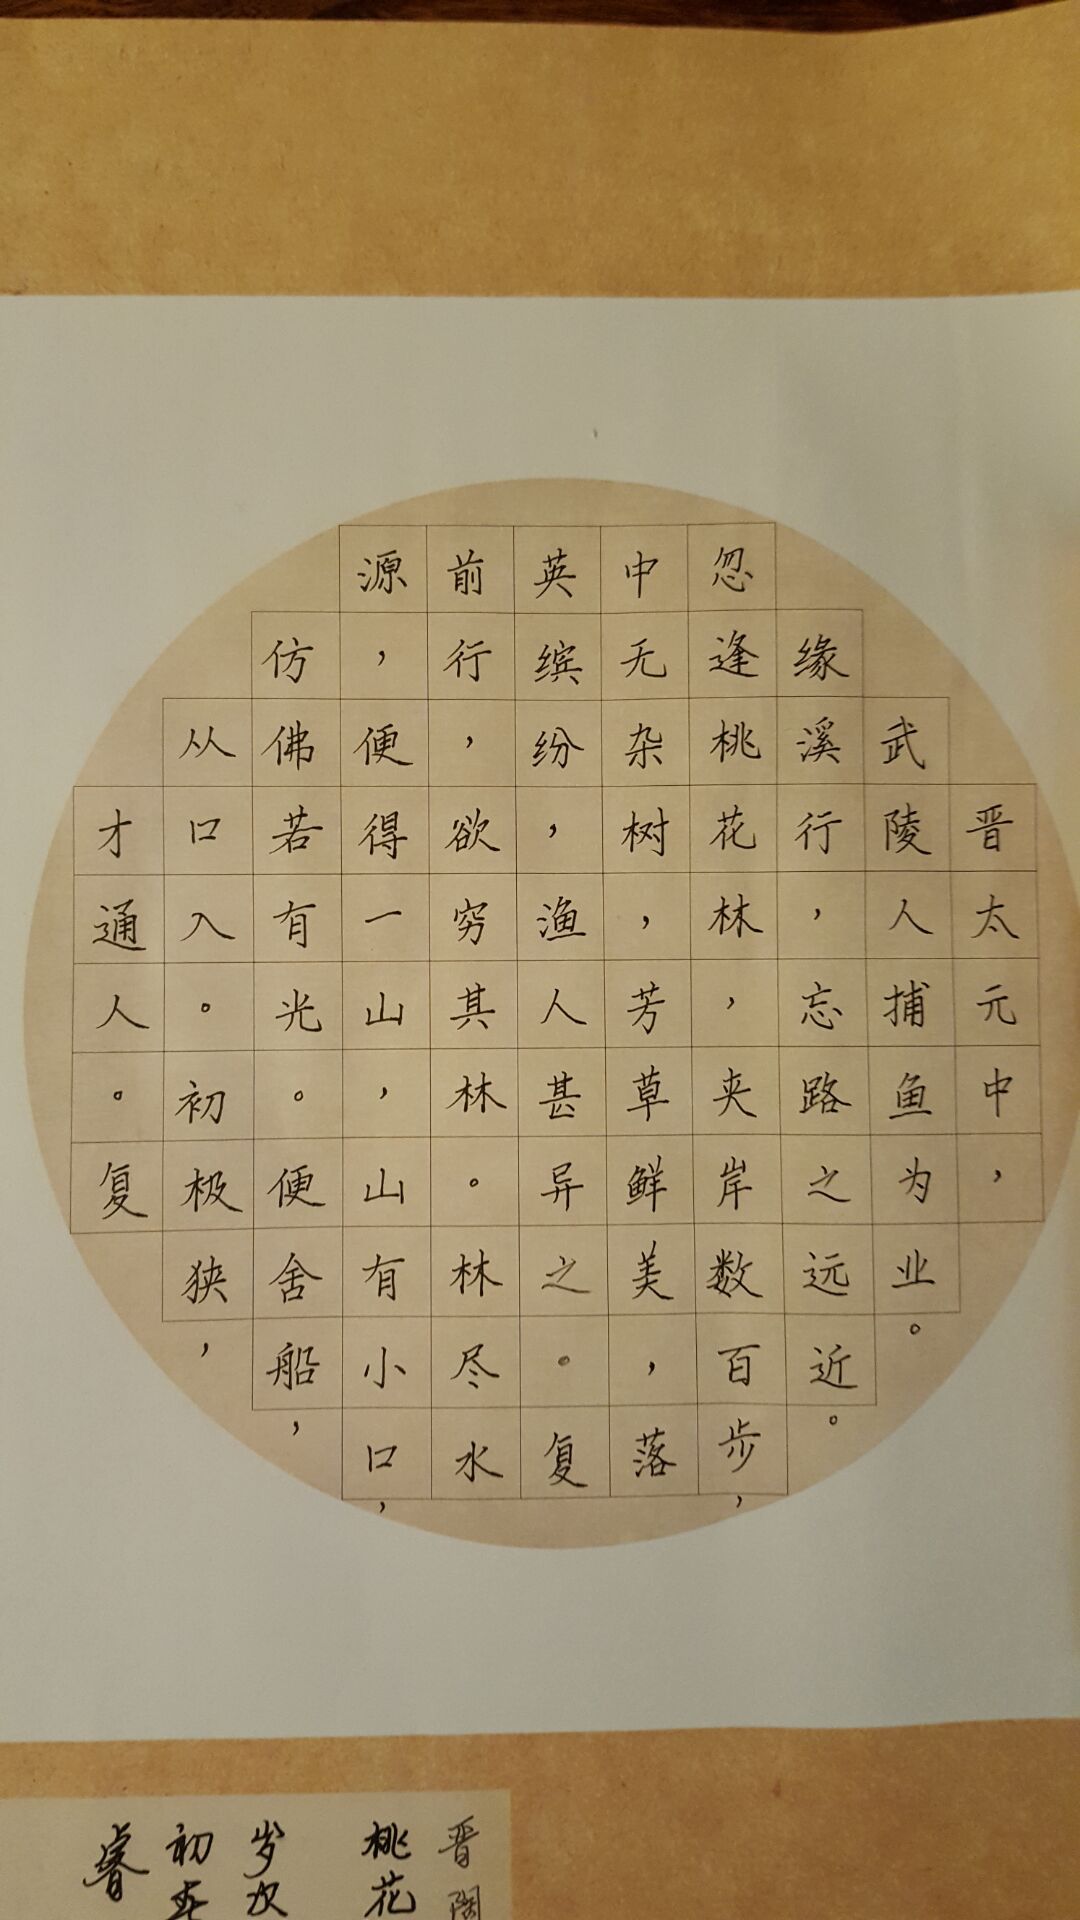 晋太元中，
武陵人捕鱼为业。
缘溪行，忘路之远近。
忽逢桃花林，夹岸数百步，
中无杂树，芳草鲜美，落
英缤纷，渔人甚异之。复
前行，欲穷其林。林尽水
源，便得一山，山有小口，
仿佛若有光。便舍船，
从口入。初极狭，
才通人。复
晋陶
桃花
岁次
初春
睿